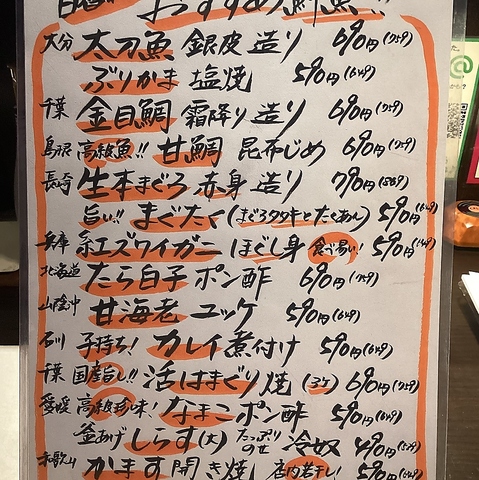 おすすめ鮮魚!!
大分 太刀魚 銀皮造り 690円(759)
ぶりかま 塩焼 590円(649)
千葉 金目鯛 霜降り造り 690円(759)
島根 高級魚!! 甘鯛 昆布じめ 690円(759)
長崎 生本まぐろ 赤身造り 790円(869)
旨い!! まぐたく(まぐろタタキとたくあん) 590円(649)
兵庫 紅ズワイガニ ほぐし身 食べ易い! 590円(649)
北海道 たら白子 ポン酢 690円(759)
山陰沖 甘海老 ユッケ 590円(649)
石川 子持ち! カレイ煮付け 590円(649)
千葉 国産旨い!! 活はまぐり焼(3ケ) 690円(759)
愛媛 高級珍味! なまこポン酢 590円(649)
釜あげしらす(大) たっぷりのせ 冷奴 490円(539)
和歌山 かます開き焼 店内若干し! 590円(649)